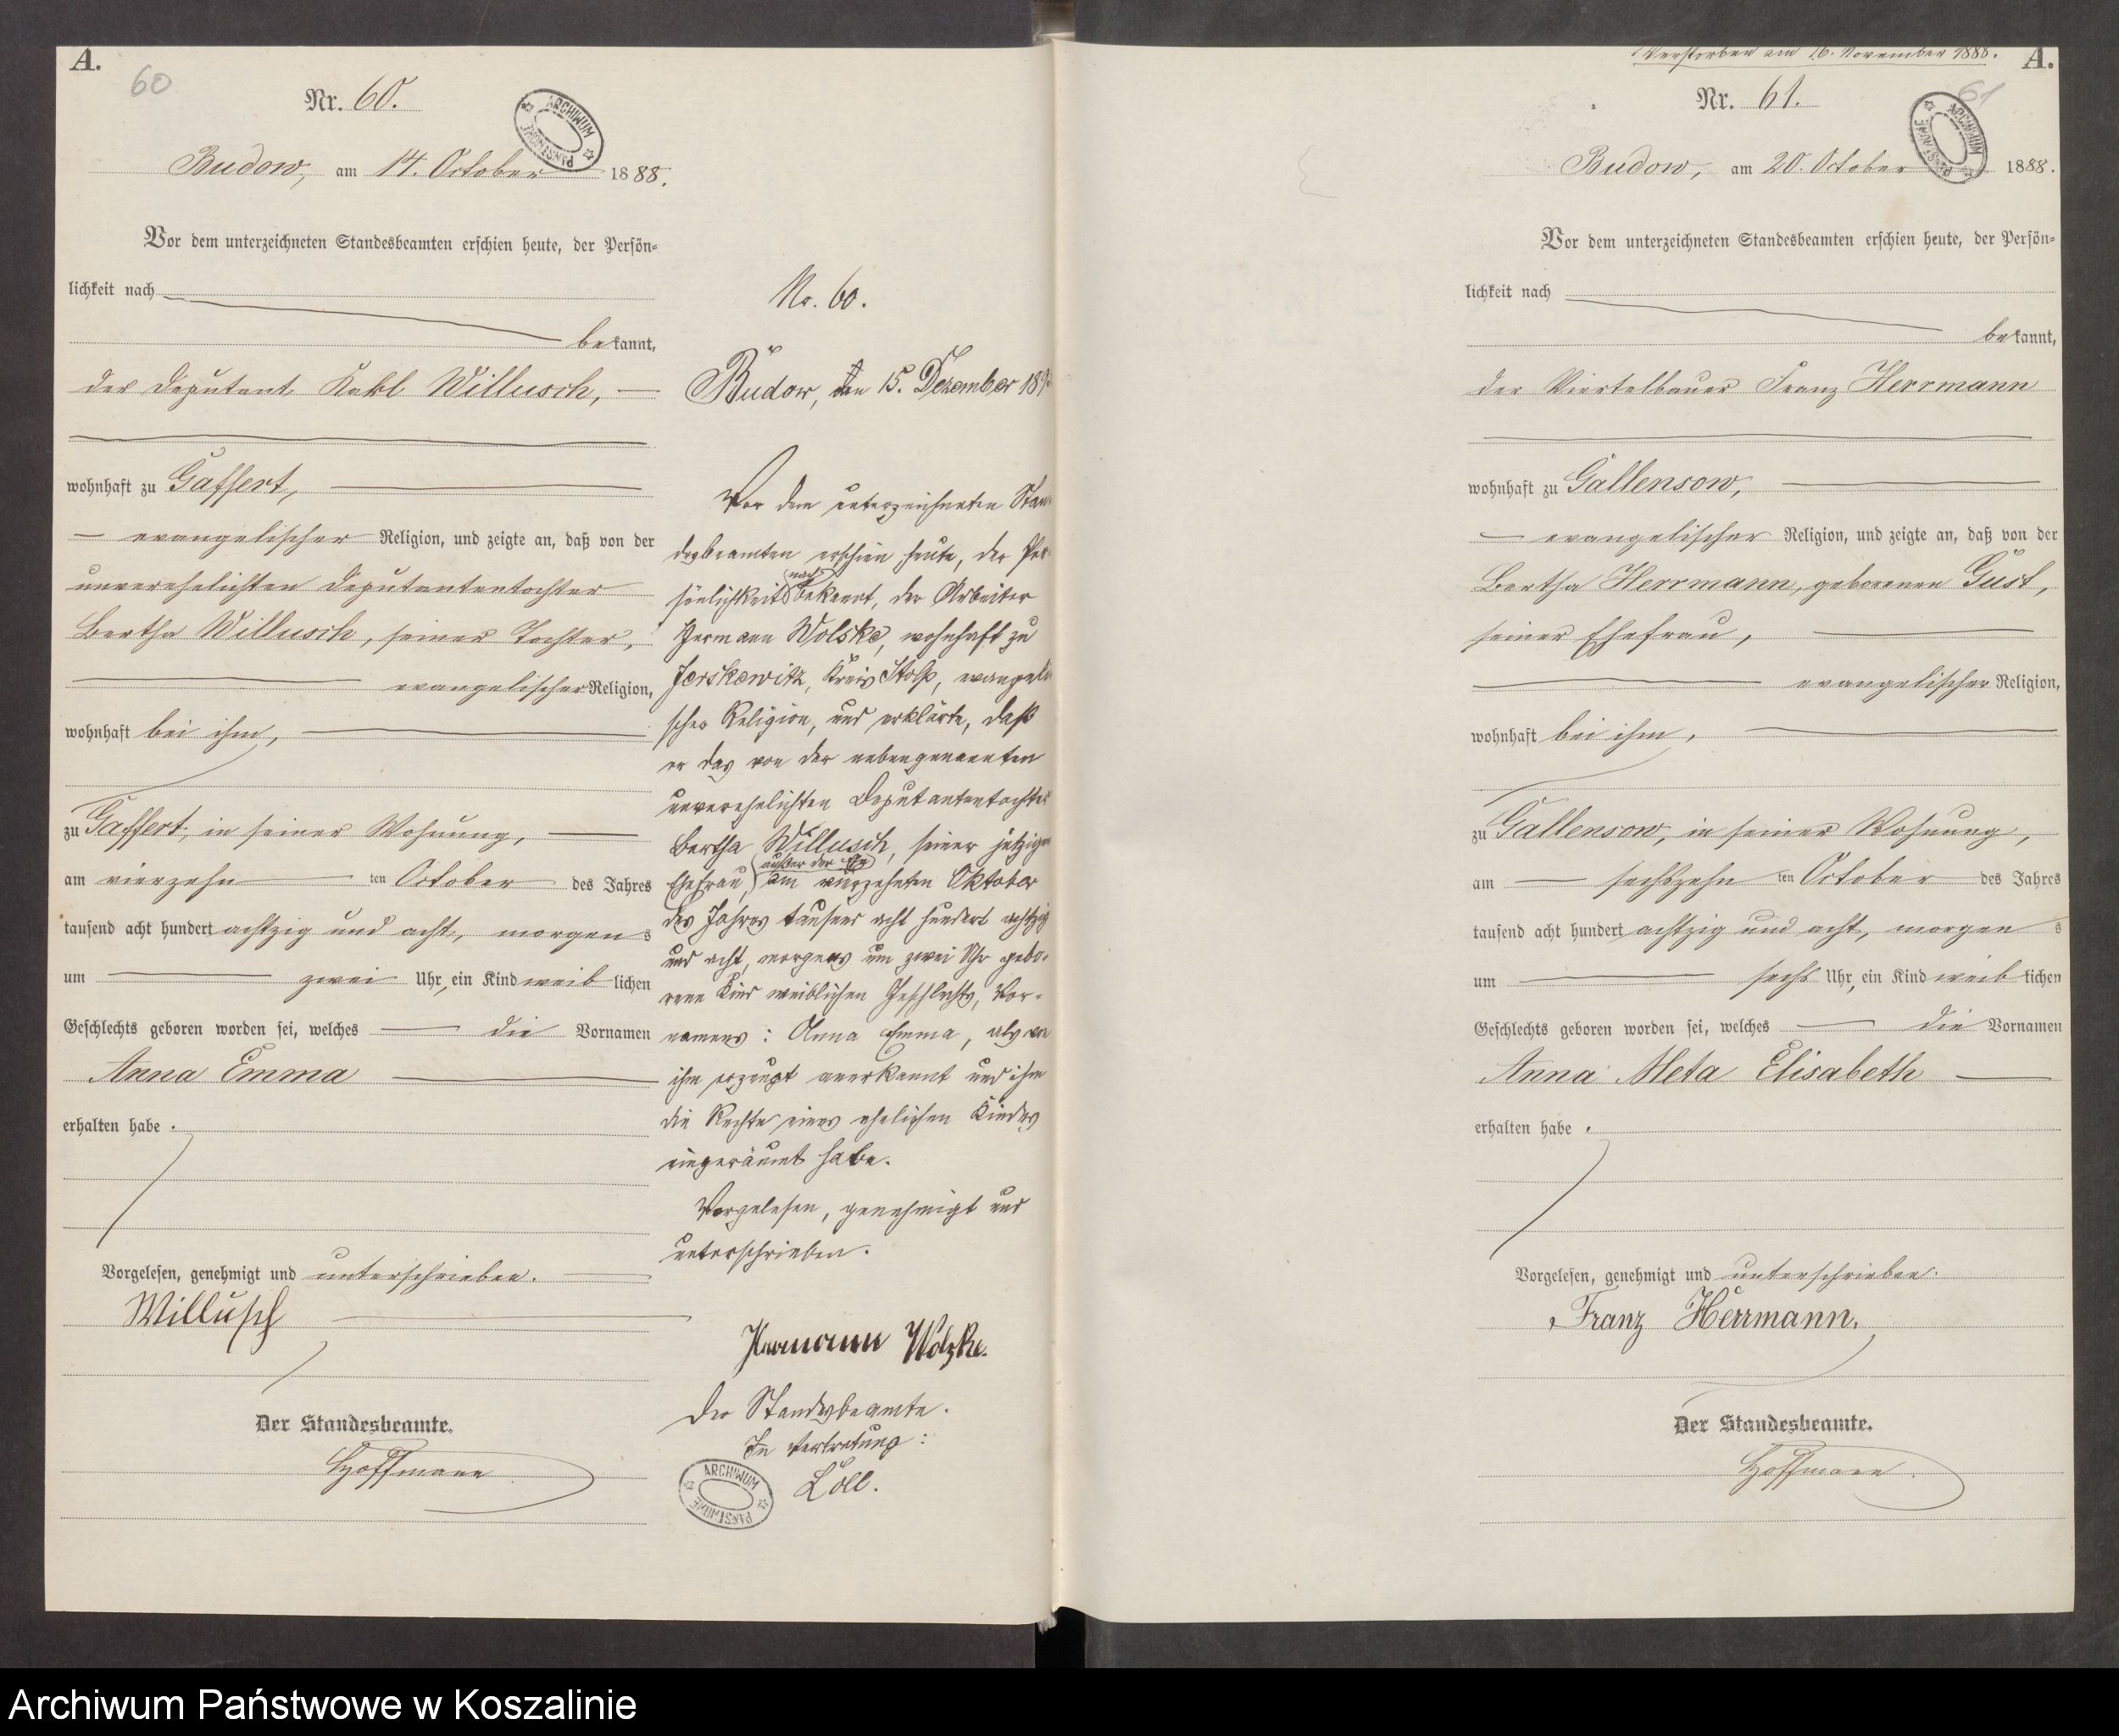 A.
60
Nr. 60.
ARCHIWUM
PAŃSTWOWE
Budow, am 14. October 1888.
Vor dem unterzeichneten Standesbeamten erschien heute, der Persön=
lichkeit nach
bekannt,
der Deputant Karl Willusch,
wohnhaft zu Gaffert,
evangelischer Religion, und zeigte an, daß von der
unverehelichten Deputantentochter
Bertha Willusch, seiner Tochter,
evangelischer Religion,
wohnhaft bei ihm,
zu Gaffert, in seiner Wohnung,
am vierzehn ten October des Jahres
tausend acht hundert achtzig und acht, morgens
um zwei Uhr, ein Kind weiblichen
Geschlechts geboren worden sei, welches die Vornamen
Anna Emma
erhalten habe.
Vorgelesen, genehmigt und unterschrieben.
Willusch
Der Standesbeamte.
Hoffmann
No. 60.
Budow, den 15. Dezember
Vor dem unterzeichneten Stan
desbeamten erschien heute, der Per
sönlichkeit nach bekannt, der Arbeiter
Hermann Wolske, wohnhaft zu
Jerskewitz, Kreis Stolp, evangeli
scher Religion, und erklärte, daß
er das von der nebengenannten
unverehelichten Deputantentochter
Bertha Willusch, seiner jetzigen
außer der Eh
Ehefrau, am vierzehnten Oktober
des Jahres tausend acht hundert achtzig
und acht, morgens um zwei Uhr gebo-
rene Kind weiblichen Geschlechts, Vor-
namens: Anna Emma, als von
ihm erzeugt anerkannt und ihm
die Rechte eines ehelichen Kindes
eingeräumt habe.
Vorgelesen, genehmigt und
unterschrieben.
Hermann Wolzke.
Der Standesbeamte.
In Vertretung:
Löll.
ARCHIWUM
PAŃSTWOWE
Verstorben am 16. November 1888.
A.
61
Nr. 61.
ARCHIWUM
PAŃSTWOWE
Budow, am 20. October 1888.
Vor dem unterzeichneten Standesbeamten erschien heute, der Persön=
lichkeit nach
bekannt,
der Viertelbauer Franz Herrmann
wohnhaft zu Gallensow,
evangelischer Religion, und zeigte an, daß von der
Bertha Herrmann, geborenen Gust,
seiner Ehefrau,
evangelischer Religion,
wohnhaft bei ihm,
zu Gallensow, in seiner Wohnung,
am sechszehn ten October des Jahres
tausend acht hundert achtzig und acht, morgens
um sechs Uhr, ein Kind weiblichen
Geschlechts geboren worden sei, welches die Vornamen
Anna Meta Elisabeth
erhalten habe.
Vorgelesen, genehmigt und unterschrieben.
Franz Herrmann.
Der Standesbeamte.
Hoffmann.
Archiwum Państwowe w Koszalinie